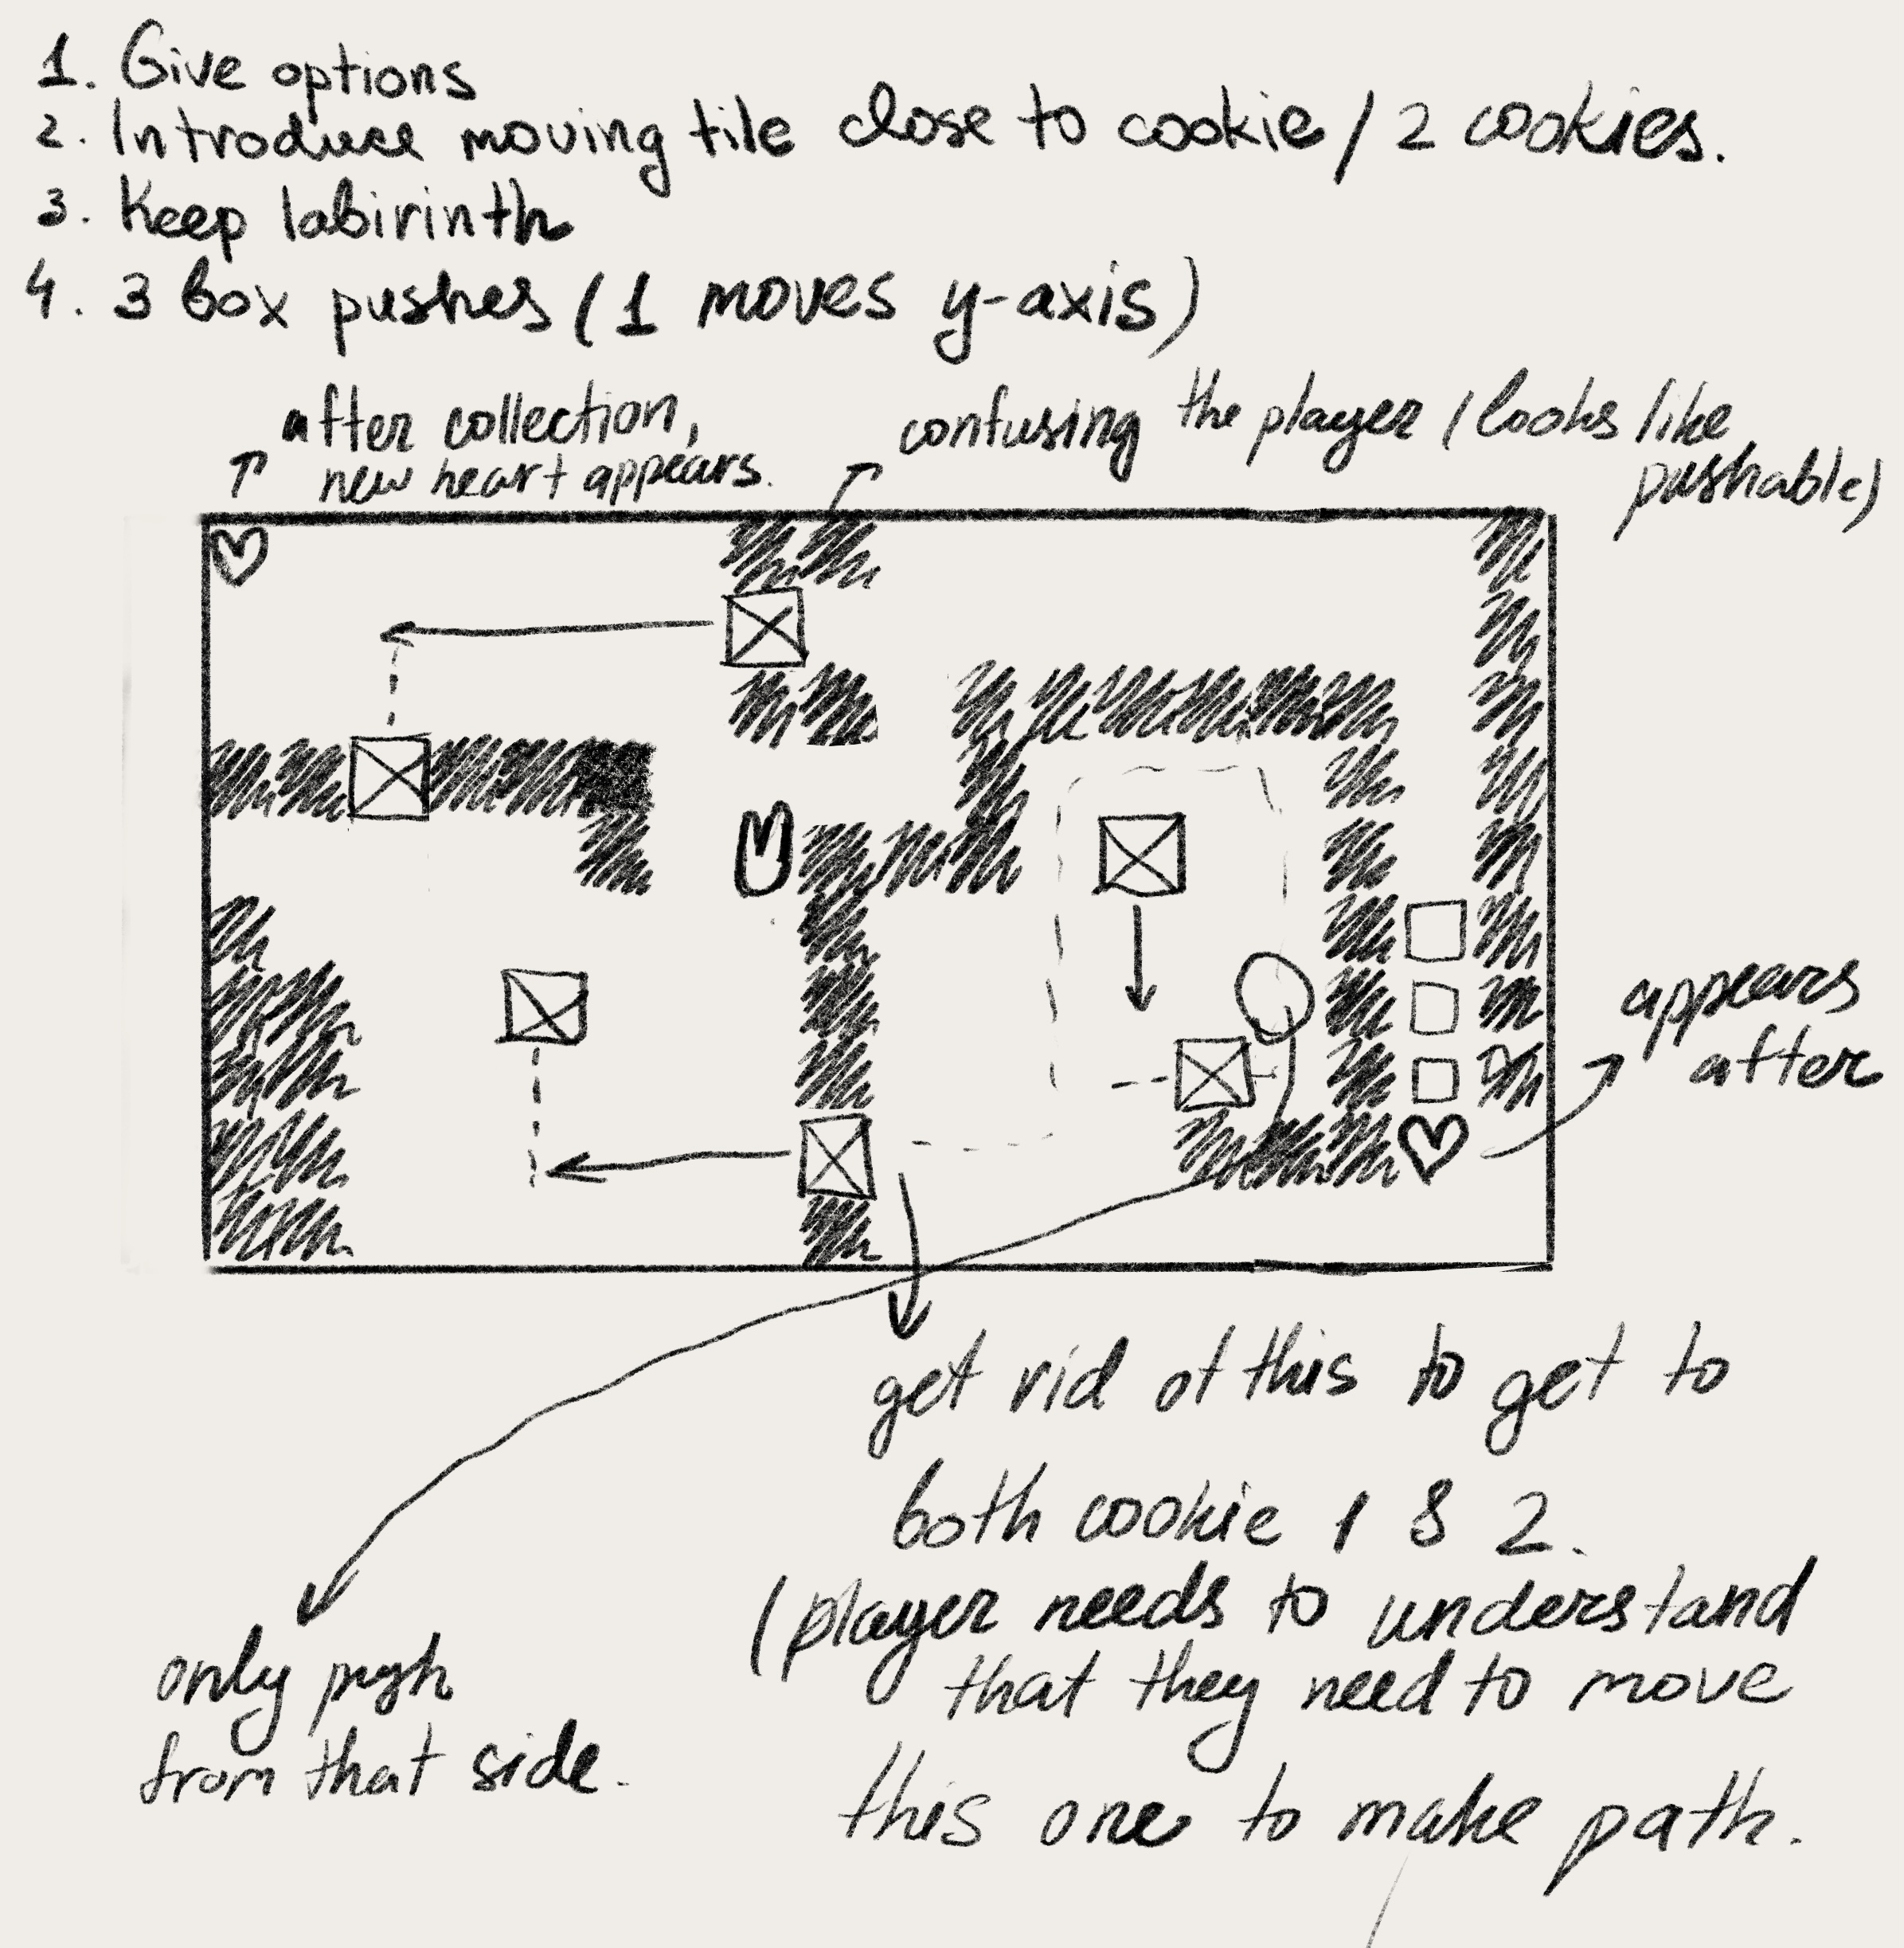 1. Give options
2. Introduce moving tile close to cookie / 2 cookies.
3. Keep labirinth
4. 3 box pushes (1 moves y-axis)
after collection,
new heart appears.
confusing the player (looks like
pushable)
appears
after
get rid of this to get to
both cookie 1 & 2.
(player needs to understand
that they need to move
this one to make path.
only push
from that side.